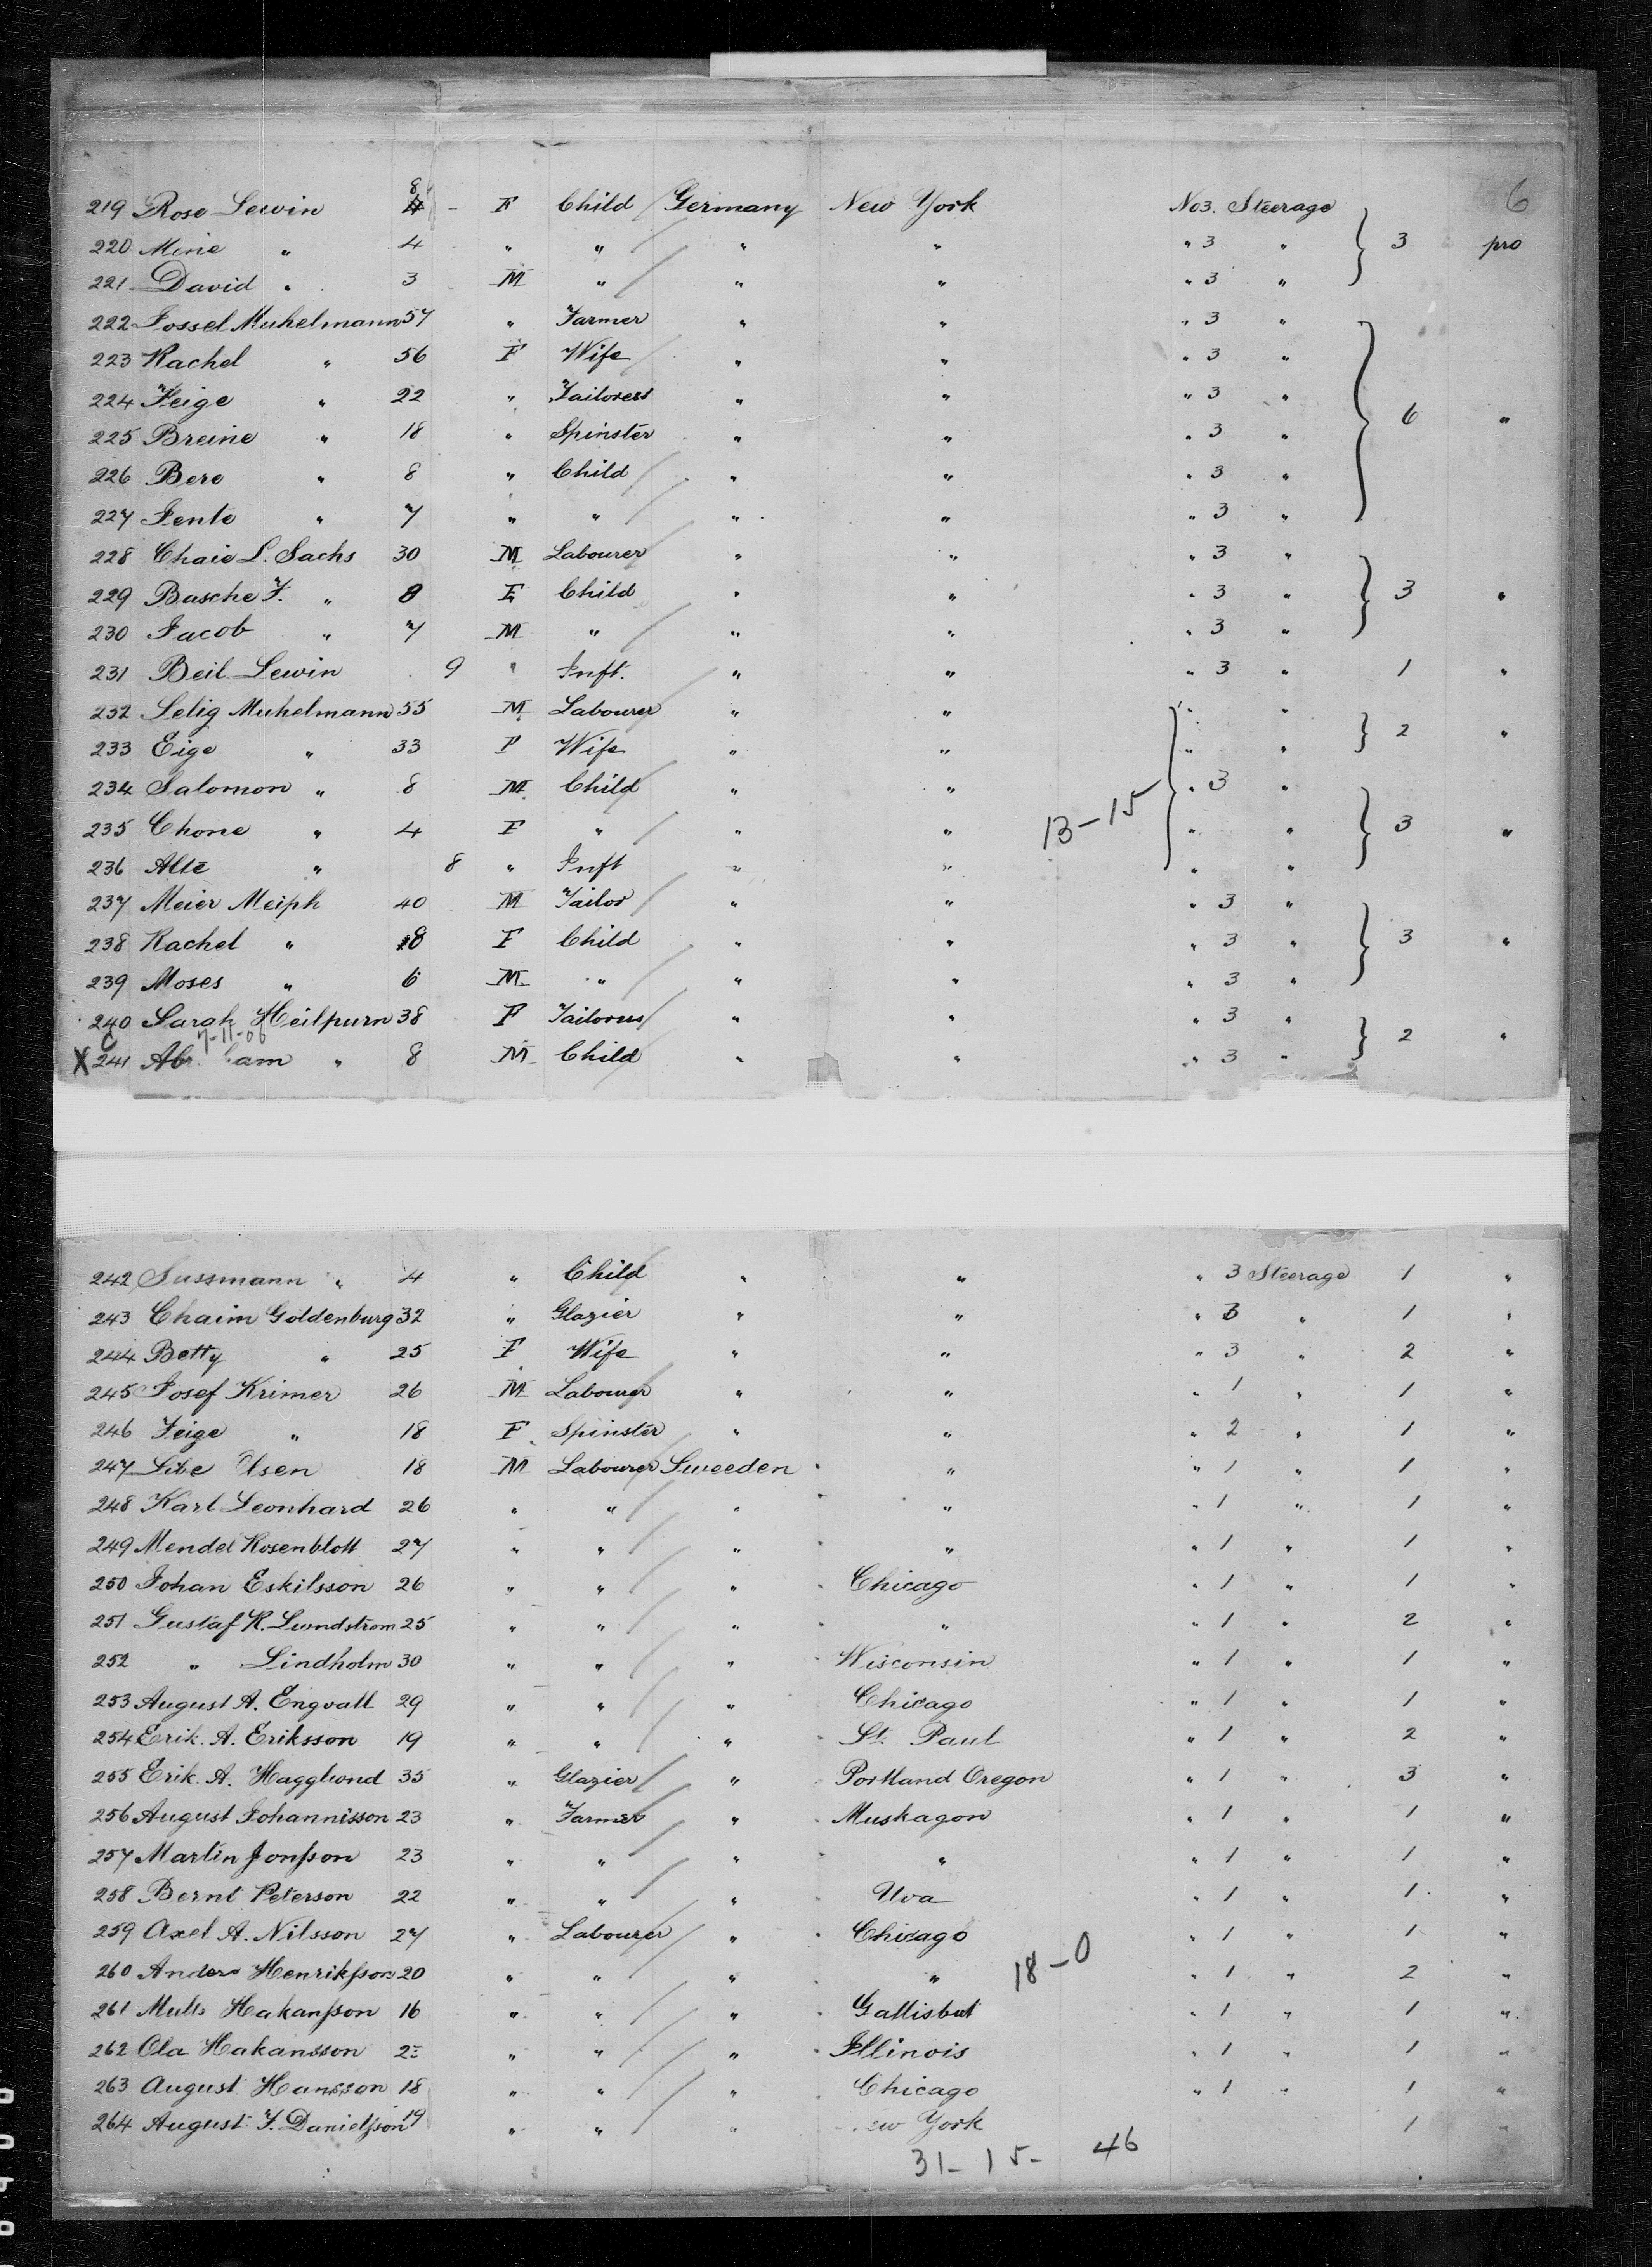 6
219 Rose Lewin 8 - F Child Germany New York No 3. Steerage
220 Mine " 4 " " " " " 3 " 3 pro
221 David " 3 M " " " " 3 "
222 Jossel Muhelmann 57 " Farmer " " " 3 "
223 Rachel " 56 F Wife " " " 3 "
224 Feige " 22 " Tailoress " " " 3 "
225 Breine " 18 " Spinster " " " 3 " 6 "
226 Bere " 8 " Child " " " 3 "
227 Jente " 7 " " " " " 3 "
228 Chaie L. Sachs 30 M Labourer " " " 3 "
229 Basche F. " 8 F Child " " " 3 " 3 "
230 Jacob " 7 M " " " " 3 "
231 Beil Lewin 9 " Inft. " " " 3 " 1 "
232 Selig Muhelmann 55 M Labourer " " " "
233 Eige " 33 F Wife " " " " 2 "
234 Salomon " 8 M Child " " " 3 "
235 Chone " 4 F " " " 13-15 " " 3 "
236 Alte " 8 " Inft " " " "
237 Meier Meiph 40 M Tailor " " " 3 "
238 Rachel " 8 F Child " " " 3 " 3 "
239 Moses " 6 M " " " " 3 "
240 Sarah Heilpurn 38 F Tailoress " " " 3 "
C 7-11-06
X 241 Ab am " 8 M Child " " " 3 " 2 "
242 Sussmann " 4 " Child " " " 3 Steerage 1 "
243 Chaim Goldenburg 32 " Glazier " " " 3 " 1 "
244 Betty " 25 F Wife " " " 3 " 2 "
245 Josef Krimer 26 M Labourer " " " 1 " 1 "
246 Feige " 18 F Spinster " " " 2 " 1 "
247 Libe Olsen 18 M Labourer Sweeden " " 1 " 1 "
248 Karl Leonhard 26 " " " " " 1 " 1 "
249 Mendel Rosenblott 27 " " " " " 1 " 1 "
250 Johan Eskilsson 26 " " " Chicago " 1 " 1 "
251 Gustaf R. Lundstrom 25 " " " " " 1 " 2 "
252 " Lindholm 30 " " " Wisconsin " 1 " 1 "
253 August A. Engvall 29 " " " Chicago " 1 " 1 "
254 Erik. A. Eriksson 19 " " " St. Paul " 1 " 2 "
255 Erik. A. Hagglund 35 " Glazier " Portland Oregon " 1 " 3 "
256 August Johannisson 23 " Farmer " Muskagon " 1 " 1 "
257 Martin Jonsson 23 " " " " " 1 " 1 "
258 Bernt Peterson 22 " " " Uva " 1 " 1 "
259 Axel A. Nilsson 27 " Labourer " Chicago " 1 " 1 "
260 Anders Henriksson 20 " " " " 18-0 " 1 " 2 "
261 Hakansson 16 " " " Gallisbut " 1 " 1 "
262 Ola Hakansson " " " Illinois " 1 " 1 "
263 August Hansson 18 " " " Chicago " 1 " 1 "
264 August F. Danielsson 19 " " " ew York 1 "
31-15- 46